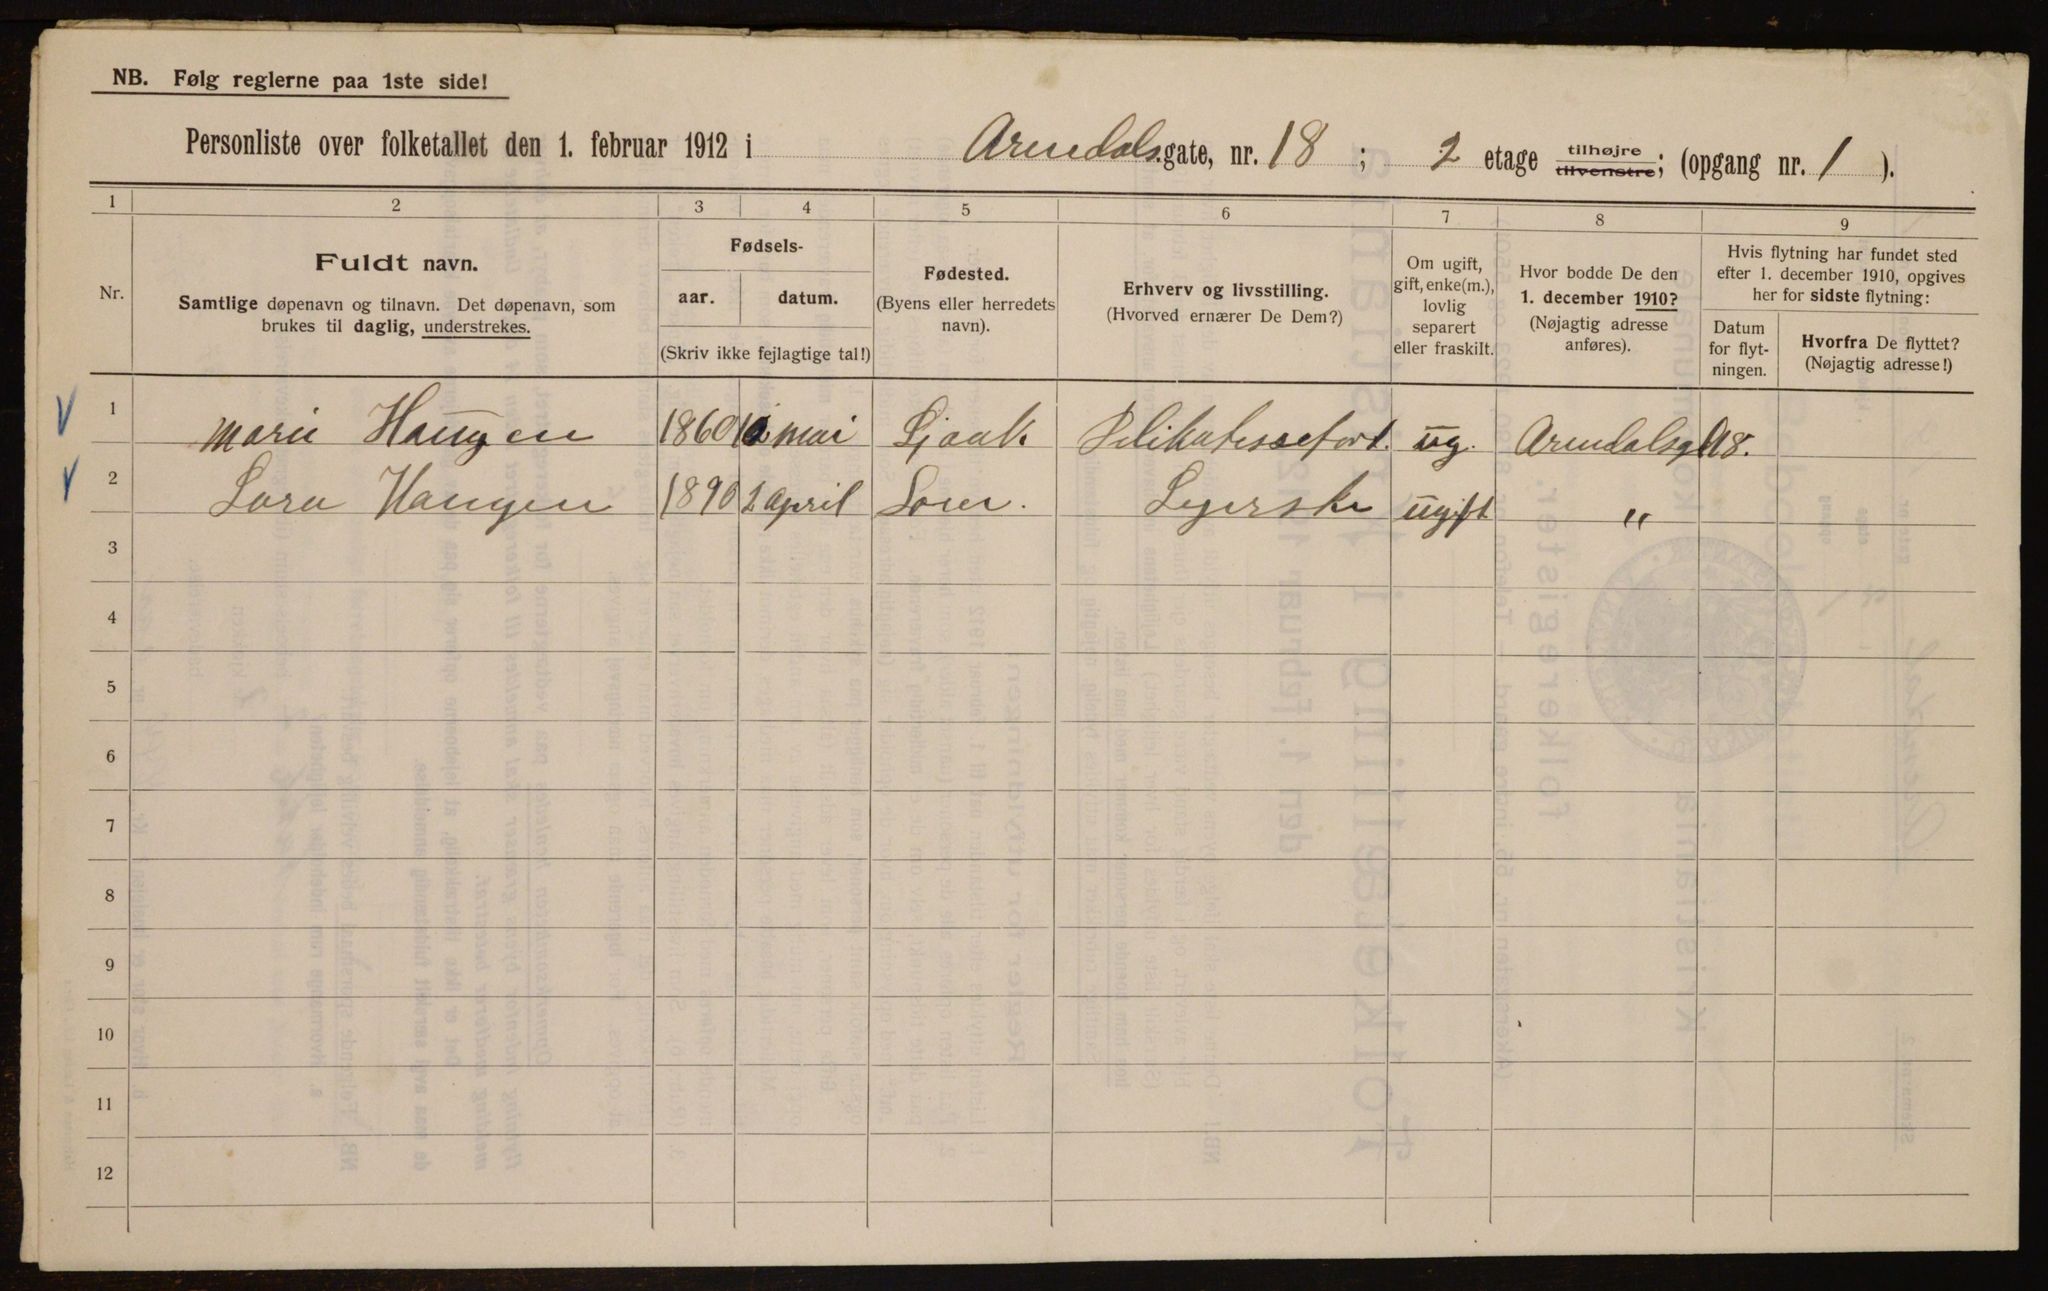 NB. Følg reglerne paa 1ste side!
Personliste over folketallet den 1. februar 1912 i Arendals.gate, nr. 18 ; 2 etage tilhøjre tilvenstre; (opgang nr. 1 ).
1 2 3 4 5 6 7 8 9
Nr.
Fuldt navn.
Samtlige døpenavn og tilnavn. Det døpenavn, som
brukes til daglig, understrekes.
Fødsels-
aar. datum.
(Skriv ikke fejlagtige tal!)
Fødested.
(Byens eller herredets
navn).
Erhverv og livsstilling.
(Hvorved ernærer De Dem?)
Om ugift,
gift, enke(m.),
lovlig
separert
eller fraskilt.
Hvor bodde De den
1. december 1910?
(Nøjagtig adresse
anføres).
Hvis flytning har fundet sted
efter 1. december 1910, opgives
her for sidste flytning:
Datum
for flyt-
ningen.
Hvorfra De flyttet?
(Nøjagtig adresse!)
1 Marie Haugen 1860 mai Ljaak Delikatessefort. ug. Arendalsgt 18.
2 Lara Haugen 1890 2 april ugift "
3
4
5
6
7
8
9
10
11
12